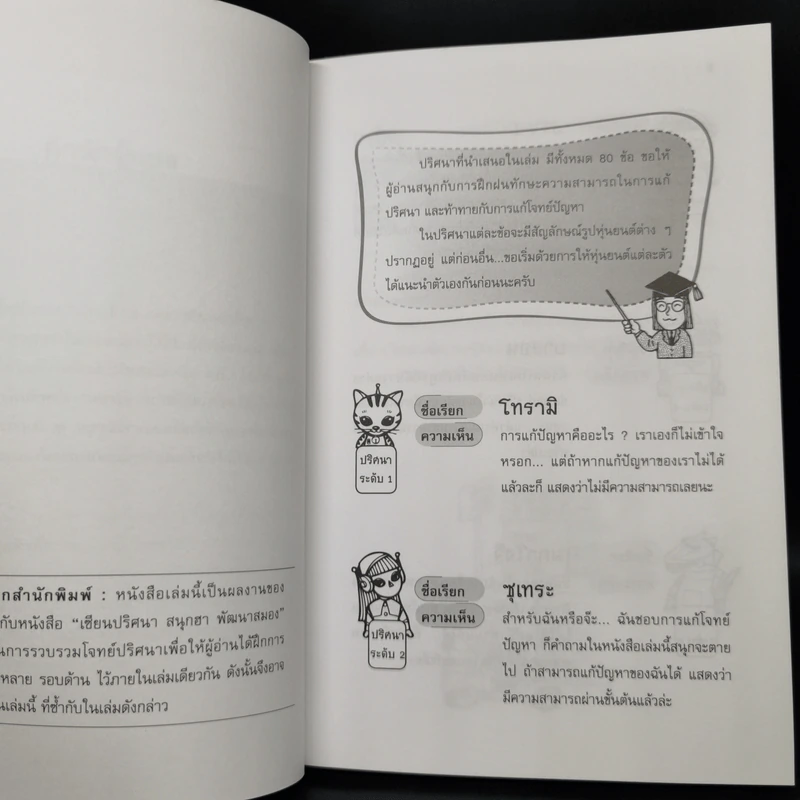 กสำนักพิมพ์ : หนังสือเล่มนี้เป็นผลงานของ
กับหนังสือ “เซียนปริศนา สนุกฮา พัฒนาสมอง”
นการรวบรวมโจทย์ปริศนาเพื่อให้ผู้อ่านได้ฝึกการ
หลาย รอบด้าน ไว้ภายในเล่มเดียวกัน ดังนั้นจึงอาจ
นเล่มนี้ ที่ซ้ำกับในเล่มดังกล่าว
ปริศนาที่นำเสนอในเล่ม มีทั้งหมด 80 ข้อ ขอให้
ผู้อ่านสนุกกับการฝึกฝนทักษะความสามารถในการแก้
ปริศนา และท้าทายกับการแก้โจทย์ปัญหา
ในปริศนาแต่ละข้อจะมีสัญลักษณ์รูปหุ่นยนต์ต่าง ๆ
ปรากฏอยู่ แต่ก่อนอื่น...ขอเริ่มด้วยการให้หุ่นยนต์แต่ละตัว
ได้แนะนำตัวเองกันก่อนนะครับ
ปริศนา
ระดับ 1
ชื่อเรียก
โทรามิ
ความเห็น
การแก้ปัญหาคืออะไร ? เราเองก็ไม่เข้าใจ
หรอก... แต่ถ้าหากแก้ปัญหาของเราไม่ได้
แล้วละก็ แสดงว่าไม่มีความสามารถเลยนะ
ปริศนา
ระดับ 2
ชื่อเรียก
ซุเทระ
ความเห็น
สำหรับฉันหรือจ๊ะ... ฉันชอบการแก้โจทย์
ปัญหา ก็คำถามในหนังสือเล่มนี้สนุกจะตาย
ไป ถ้าสามารถแก้ปัญหาของฉันได้ แสดงว่า
มีความสามารถผ่านชั้นต้นแล้วล่ะ